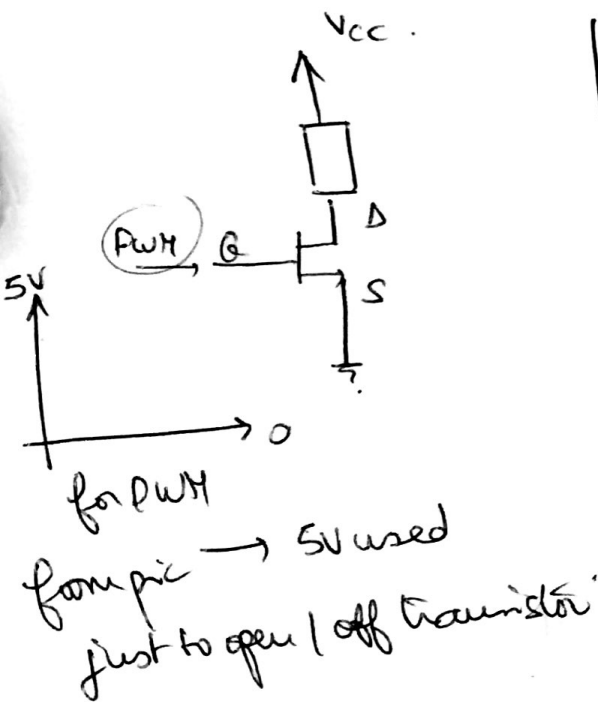 VCC .
D
PWM G
S
5V
0
for PWM
from pic → 5V used
just to open / off transistor